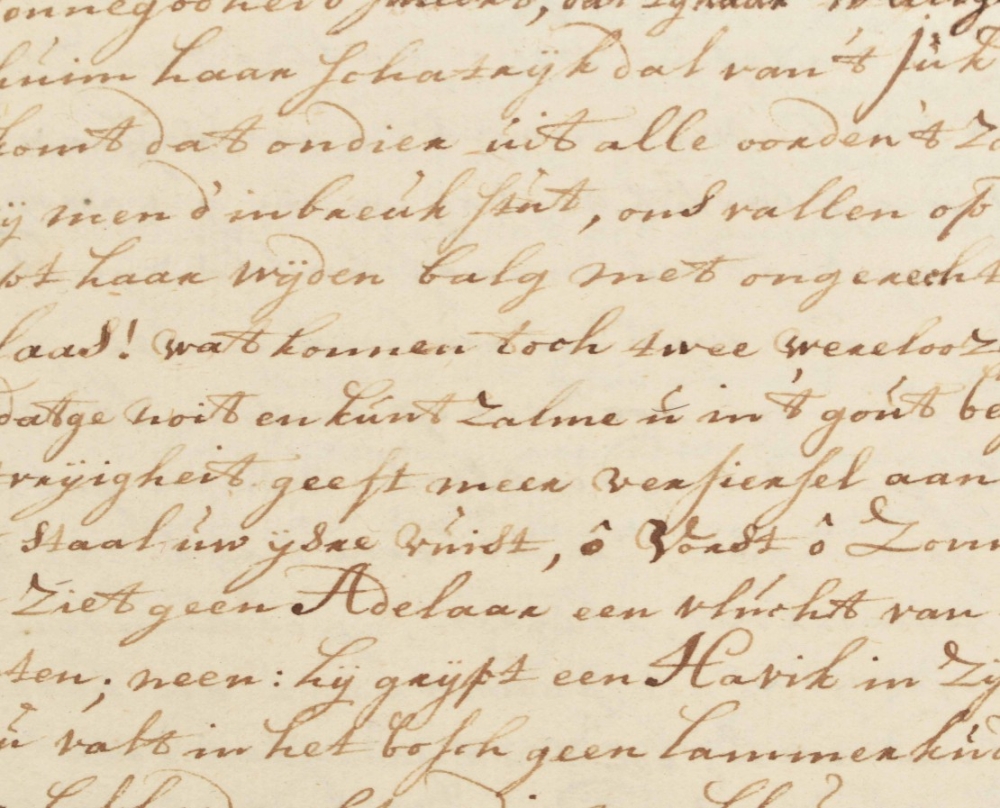 huim haar schatryk dal van 't juk
komt dat ondier uit alle oorden 't
ÿ men d'inbreuk stut, ons vallen op
haar wÿden balg met ongerecht
laas! wat konnen toch twee werelooz
datge noit en kunt zalme u in 't gout be
vrÿigheit geeft meer versiersel aan
staal uw ÿsre vuist, ô Vorst ô Zonn
Ziet geen Adelaar een vlucht van
ten; neen: hÿ grÿpt een Havik in zÿ
u valt in het bosch geen lammerkud